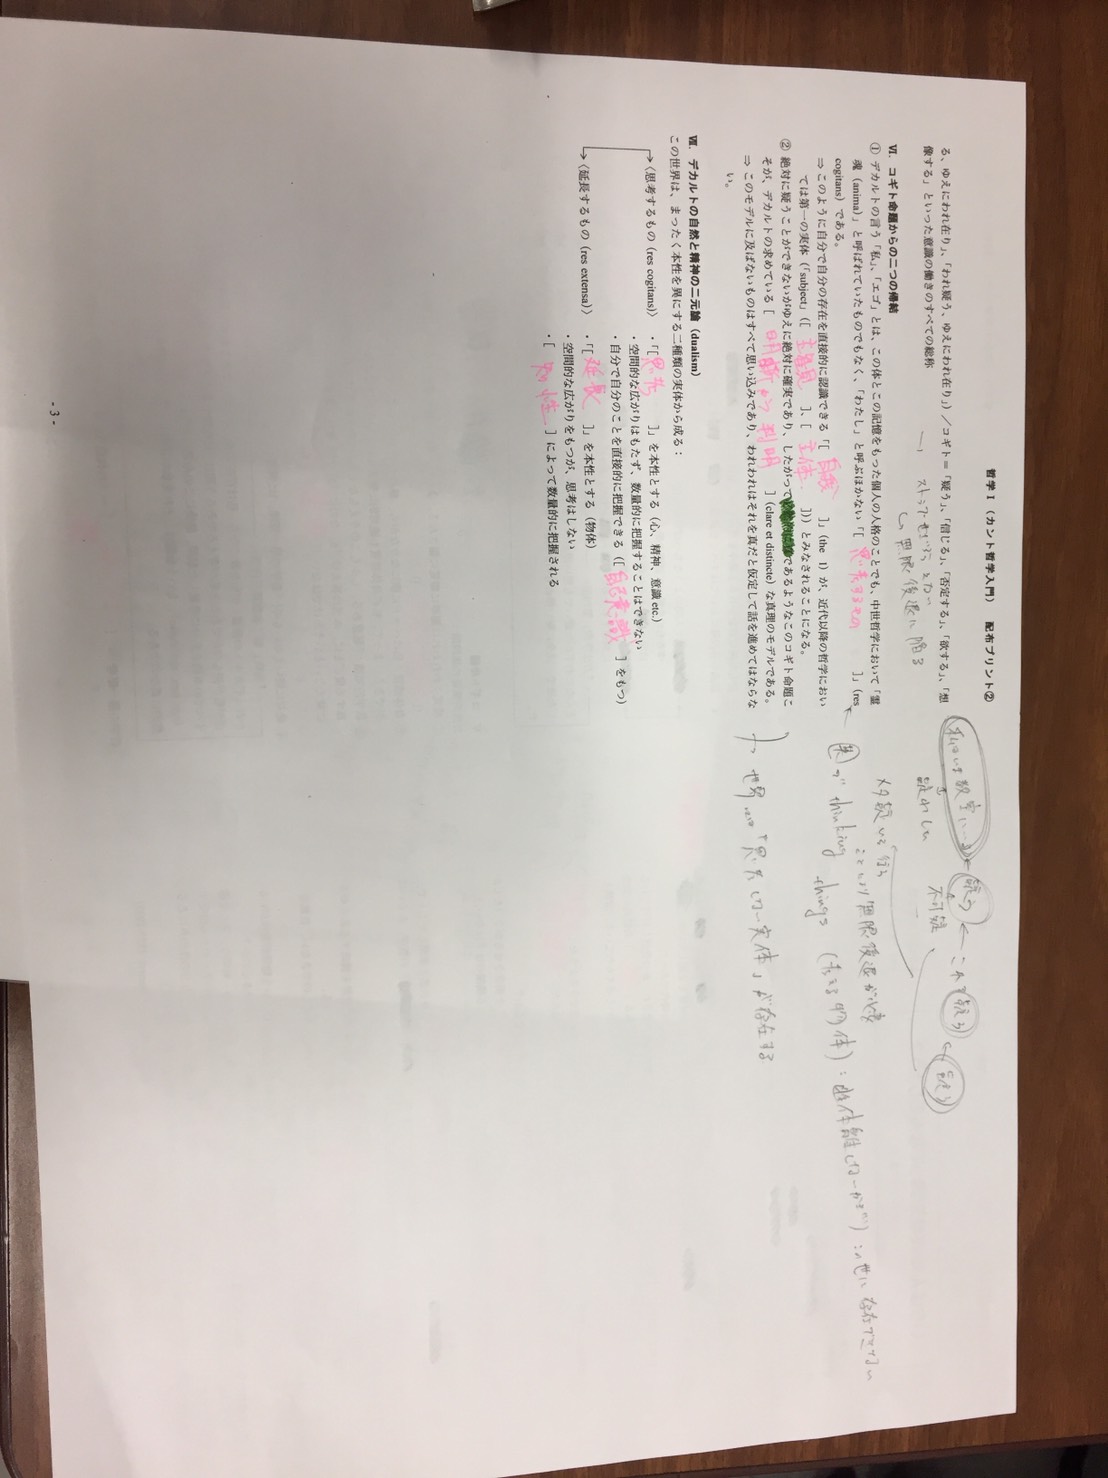 哲学Ⅰ（カント哲学入門）　配布プリント②
る、ゆえにわれ在り」、「われ疑う、ゆえにわれ在り」）／コギト＝「疑う」、「信じる」、「否定する」、「欲する」、「想
像する」といった意識の働きのすべての総称
無限後退に陥る
Ⅵ. コギト命題からの二つの帰結
① デカルトの言う「私」、「エゴ」とは、この体とこの記憶をもった個人の人格のことでも、中世哲学において「霊
魂（anima）」と呼ばれていたものでもなく、「わたし」と呼ぶほかない「[ 思考するもの ]」（res
cogitans）である。
⇒ このように自分で自分の存在を直接的に認識できる「[ 自我 ]」（the I）が、近代以降の哲学におい
ては第一の実体（「subject」（[ 主観 ]、[ 主体 ]））とみなされることになる。
② 絶対に疑うことができないがゆえに絶対に確実であり、したがって であるようなこのコギト命題こ
そが、デカルトの求めている [ 明晰かつ判明 ]（clare et distincte）な真理のモデルである。
⇒ このモデルに及ばないものはすべて思い込みであり、われわれはそれを真だと仮定して話を進めてはならな
い。
Ⅶ. デカルトの自然と精神の二元論（dualism）
この世界は、まったく本性を異にする二種類の実体から成る：
〈思考するもの（res cogitans）〉　・「[ 思考 ]」を本性とする（心、精神、意識 etc.）
・空間的な広がりはもたず、数量的に把握することはできない
・自分で自分のことを直接的に把握できる（[ 自己意識 ] をもつ）
〈延長するもの（res extensa）〉　・「[ 延長 ]」を本性とする（物体）
・空間的な広がりをもつが、思考はしない
・[ ] によって数量的に把握される
- 3 -
私はいま教室にいる ← 疑う ← これを疑う ← 疑う
疑わしい
不可疑
無限後退が必要
英 thinking things （考える物体）
世界には「思考しない実体」が存在する